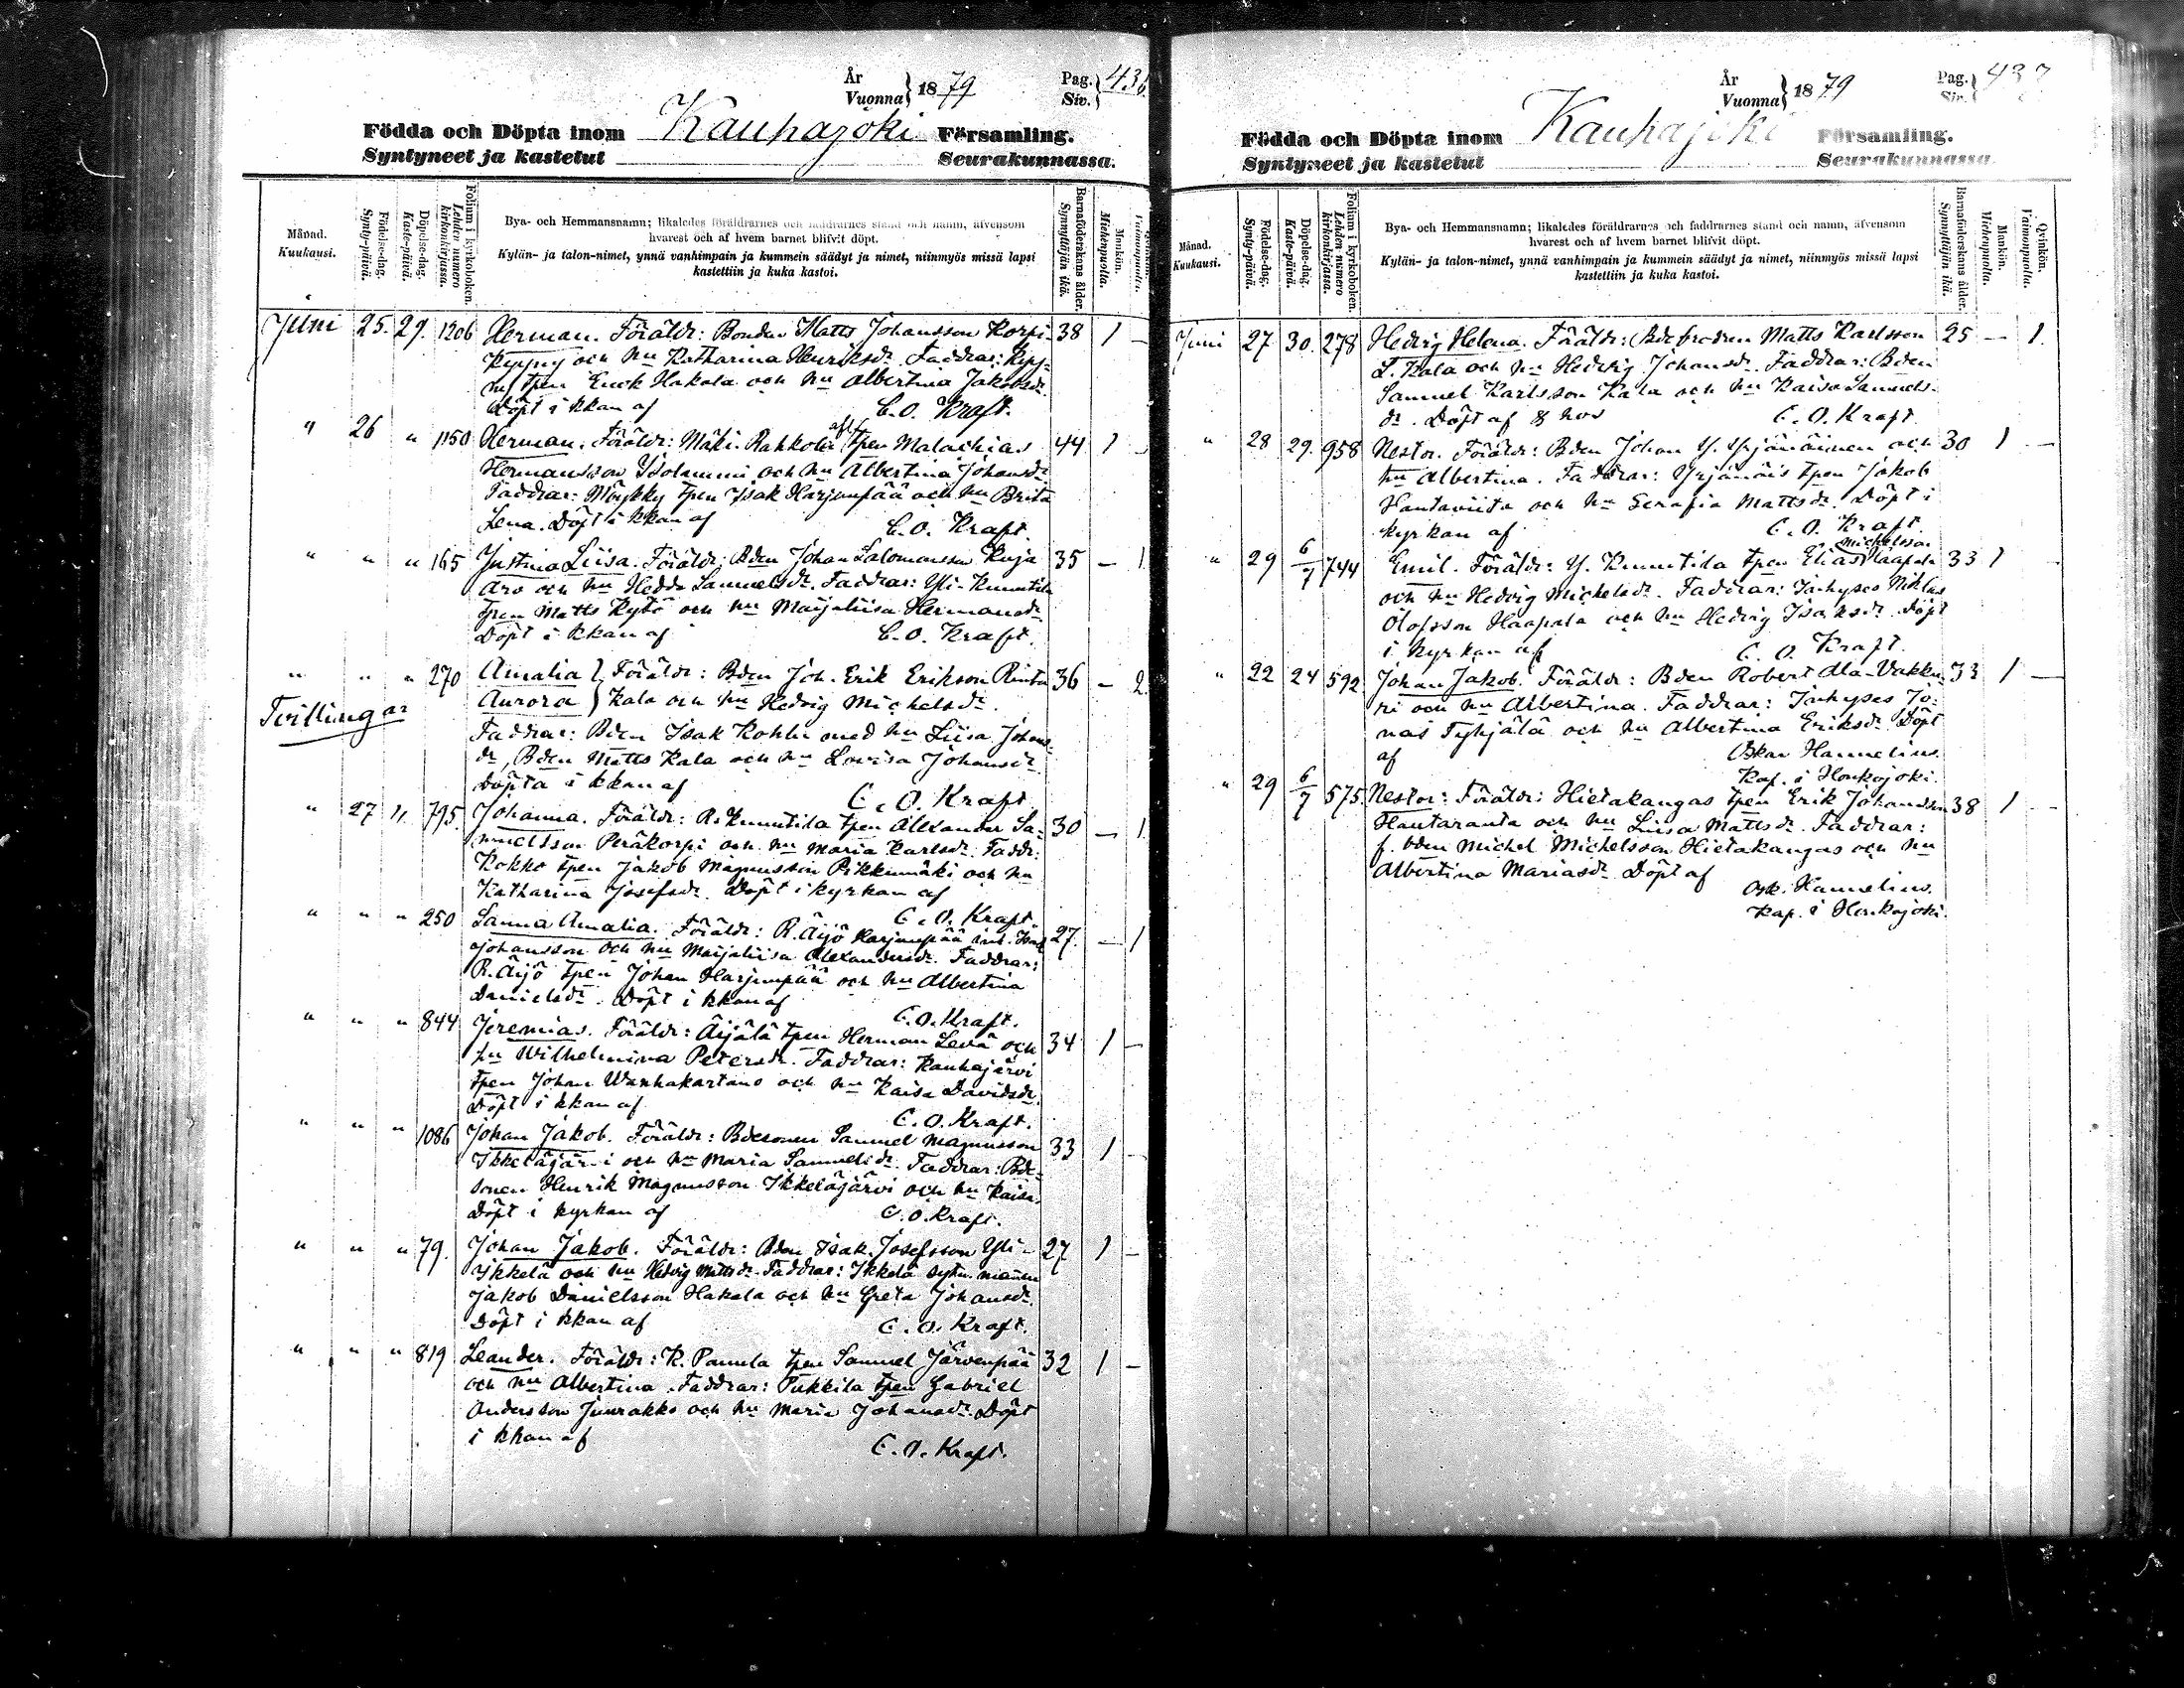 År
Vuonna } 1879
Pag.
Siv. } 436
Födda och Döpta inom Kauhajoki Församling.
Syntyneet ja kastetut Seurakunnassa.
Månad.
Kuukausi.
Födelse-dag.
Synty-päivä.
Döpelse-dag.
Kaste-päivä.
Folium i kyrkoboken.
Lehden numero kirkonkirjassa.
Bya- och Hemmansnamn; likaledes föräldrarnes och faddrarnes stånd och namn, äfvensom
hvarest och af hvem barnet blifvit döpt.
Kylän- ja talon-nimet, ynnä vanhimpain ja kummein säädyt ja nimet, niinmyös missä lapsi
kastettiin ja kuka kastoi.
Barnaföderskans ålder.
Synnyttäjän ikä.
Mankön.
Miehenpuolta.
Juni 25. 29. 1206 Herman. Föräldr: Bonden Matts Johansson Korpi- 38 1 —
Kyyny och hu Katharina Henriksdr. Faddrar: Kyy-
ny tpen Erik Hakola och hu Albertina Jakobsdr
Döpt i kkan af C. O. Kraft.
" 26 " 1150 Herman. Föräldr: Mäki-Rahkola tpen Malachias 44 1 —
Hermansson Yliluumi och hu Albertina Johansdr
Faddrar: Möykky tpen Isak Harjunpää och hu Brita
Lena. Döpt i kkan af C. O. Kraft.
" " " 165 Justina Liisa. Föräldr: Bden Johan Salomonsson Kuja 35 — 1
Aro och hu Hedda Samuelsdr. Faddrar: Yli-Knuutila
tpen Matts Kytö och hu Maijaliisa Hermansdr
Döpt i kkan af C. O. Kraft.
" " " 270 Amalia } Föräldr: Bden Joh. Erik Erikson Rinta 36 — 2
Tvillingar
Aurora } Kala och hu Hedvig Michelsdr.
Faddrar: Bden Isak Kohlu med hu Liisa Johans-
dr, Bden Matts Kala och hu Lovisa Johansdr
Döpta i kkan af C. O. Kraft
" 27 " 795. Johanna. Föräldr: R. Knuutila tpen Alexander Sa- 30 — 1
muelsson Peräkorpi och hu Maria Karlsdr. Faddr:
Kokko tpen Jakob Magnusson Pikkumäki och hu
Katharina Josefsdr. Döpt i kyrkan af
C. O. Kraft
" " " 250 Sanna Amalia. Föräldr: R. Äijö Harjunpää inh. Isak 27. — 1
Johansson och hu Maijaliisa Alexandersdr. Faddrar:
R. Äijö tpen Johan Harjunpää och hu Albertina
Danielsdr. Döpt i kkan af
C. O. Kraft.
" " " 844 Jeremias. Föräldr: Äijälä tpen Herman Levä och 34 1 —
hu Wilhelmina Petersdr. Faddrar: Kauhajärvi
tpen Johan Wanhakartano och hu Kaisa Davidsdr.
Döpt i kkan af C. O. Kraft.
" " " 1086 Johan Jakob. Föräldr: Bdesonen Samuel Magnusson 33 1 —
Ikkeläjärvi och hu Maria Samuelsdr. Faddrar: Bde-
sonen Henrik Magnusson Ikkeläjärvi och hu Kaisa.
Döpt i kyrkan af C. O. Kraft.
" " " 79. Johan Jakob. Föräldr: Bden Isak Josefsson Yli- 27 1 —
Ikkelä och hu Hedvig Mattsdr. Faddrar: Ikkelä sytn. mannen
Jakob Danielsson Hakala och hu Greta Johansdr.
Döpt i kkan af C. O. Kraft.
" " " 819 Leander. Föräldr: K. Panula tpen Samuel Järvenpää 32 1 —
och hu Albertina. Faddrar: Pukkila tpen Gabriel
Andersson Juurakko och hu Maria Johansdr. Döpt
i kkan af C. O. Kraft.
År
Vuonna } 1879
Pag.
Siv. } 437
Födda och Döpta inom Kauhajoki Församling.
Syntyneet ja kastetut Seurakunnassa.
Månad.
Kuukausi.
Födelse-dag.
Synty-päivä.
Döpelse-dag.
Kaste-päivä.
Folium i kyrkoboken.
Lehden numero kirkonkirjassa.
Bya- och Hemmansnamn; likaledes föräldrarnes och faddrarnes stånd och namn, äfvensom
hvarest och af hvem barnet blifvit döpt.
Kylän- ja talon-nimet, ynnä vanhimpain ja kummein säädyt ja nimet, niinmyös missä lapsi
kastettiin ja kuka kastoi.
Barnaföderskans ålder.
Synnyttäjän ikä.
Mankön.
Miehenpuolta.
Qvinkön.
Vaimonpuolta.
Juni 27 30. 278 Hedvig Helena. Föräldr: Bdebrodren Matts Karlsson 25 — 1.
L. Kala och hu Hedvig Johansdr. Faddrar: Bden
Samuel Karlsson Kala och hu Kaisa Samuels-
dr. Döpt af & hos C. O. Kraft.
" 28 29. 958 Nestor. Föräldr: Bden Johan Y. Yrjänäinen och 30 1 —
hu Albertina. Faddrar: Yrjänäis tpen Jakob
Hautaviita och hu Serafia Mattsdr. Döpt i
kyrkan af C. O. Kraft.
Michelsson
" 29 6/7 744 Emil. Föräldr: Y. Knuutila tpen Elias Haapala 33 1
och hu Hedvig Michelsdr. Faddrar: Inhyses Niklas
Olofsson Haapala och hu Hedvig Isaksdr. Döpt
i kyrkan af C. O. Kraft.
" 22 24 592 Johan Jakob. Föräldr: Bden Robert Ala-Vakku- 33 1 —
ri och hu Albertina. Faddrar: Inhyses Jo-
nas Tyhjälä och hu Albertina Eriksdr. Döpt
af Oskar Hannelius.
Kap. i Honkajoki.
" 29 6/7 575. Nestor: Föräldr: Hietakangas tpen Erik Johansson 38 1 —
Hautaranta och hu Liisa Mattsdr. Faddrar:
f. bden Michel Michelsson Hietakangas och hu
Albertina Mariasdr. Döpt af
Osk. Hannelius.
Kap. i Honkajoki.